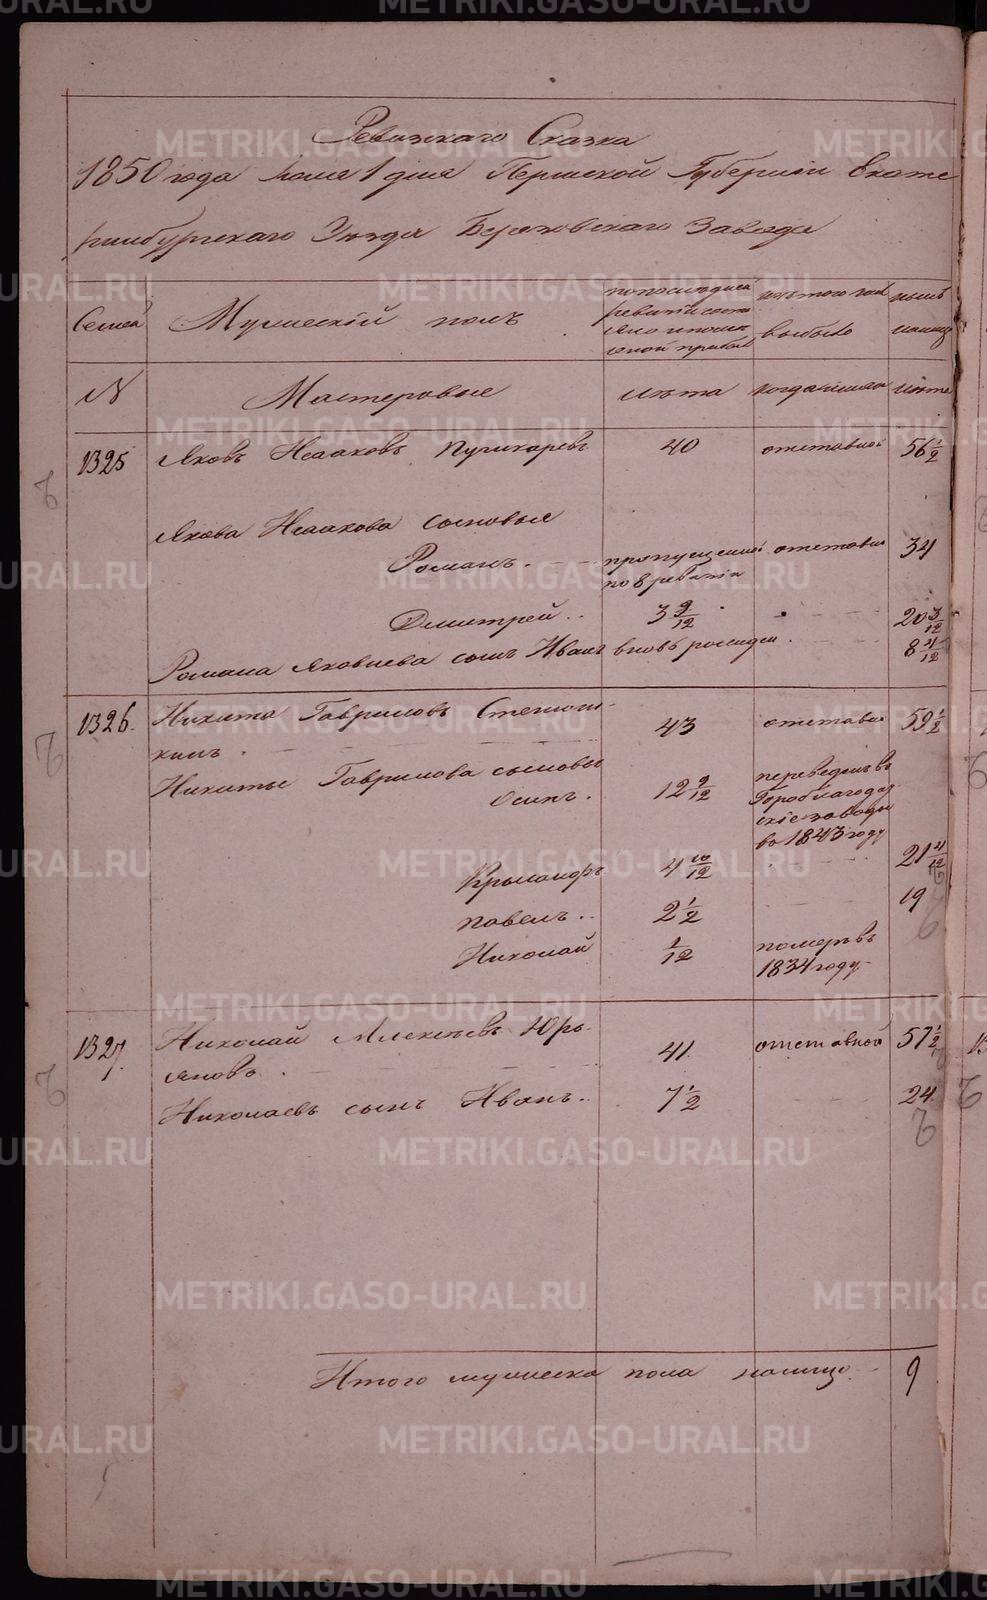 Ревизскаго Сказка
1850 года Мая 1 дня Пермской Губернии Екате
ринбургскаго Уезда Березовскаго Завода
Семей
Мужескій полъ
по последней
ревизіи состо
яло и после
оной прибыло
изъ того числа
выбыло
ныне
налицо
N
Мастеровые
лѣта
когда именно
лѣта
1325
Яковъ Исааковъ Пушкаревъ
40
отставной
56 1/2
Якова Исаакова сыновья
Романъ.
пропущенной
по 8 ревизіи
отставной
34
Дмитрей..
3 9/12
20 3/12
Романа Яковлева сынъ Иванъ
вновь рожденъ.
8 4/12
1326.
Никита Гавриловъ
43
отставной
59 1/2
кинъ.
Никиты Гаврилова сыновья
Осипъ.
12 9/12
переведенъ въ
Гороблагодат
скіе заводы
въ 1843 году
4 10/12
21 4/12
Павелъ..
2 1/2
19
Николай
1/12
померъ въ
1834 году
1327.
Николай Алексѣевъ Юрь
яновъ.
41.
отставной
57 1/2
Николаевъ сынъ Иванъ..
7 1/2
24.
Итого мужеска пола налицо.
9
METRIKI.GASO-URAL.RU